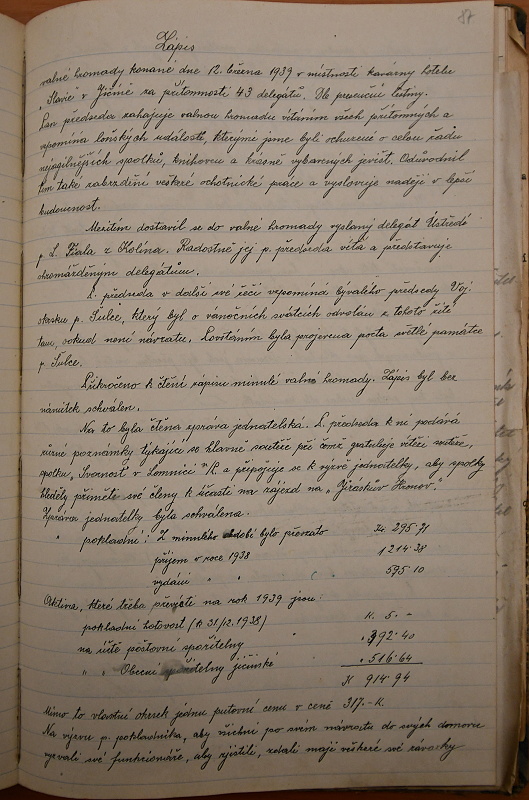 87
Zápis
valné hromady konané dne 12. března 1939 v místnosti kavárny hotelu
"Slavie" v Jičíně za přítomnosti 43 delegátů. Dle presenční listiny.
Pan předseda zahajuje valnou hromadu vítáním všech přítomných a
vzpomíná loňských událostí, kterými jsme byli ochuzeni o celou řadu
nejagilnějších spolků, knihovnu a krásně vybavených jevišť. Odůvodnil
tím také zabrzdění veškeré ochotnické práce a vyslovuje naději v lepší
budoucnost.
Mezitím dostavil se do valné hromady vyslaný delegát Ústředí
p. L. Fiala z Kolína. Radostně jej p. předseda vítá a představuje
shromážděným delegátům.
P. předseda v další své řeči vzpomíná bývalého předsedy
p. Šulce, který byl o vánočních svátcích odvolán z tohoto světa
tam, odkud není návratu. Povstáním byla projevena pocta světlé památce
p. Šulce.
Přikročeno k čtení zápisu minulé valné hromady. Zápis byl bez
námitek schválen.
Na to byla čtena zpráva jednatelská. P. předseda k ní podává
různé poznámky týkající se hlavně soutěže při čemž gratuluje vítězi soutěže,
spolku "Svornost" v Lomnici n/P. a připojuje se k výzvě jednatelky, aby spolky
hleděly přiměti své členy k účasti na zájezd na "Jiráskův Hronov".
Zpráva jednatelky byla schválena.
" pokladní: Z minulého období bylo převzato Kč 295·71
příjem v roce 1938 1214·38
vydání " " " 595·10
Aktiva, které třeba převésti na rok 1939 jsou:
pokladní hotovost (k 31./12. 1938) K. 5.–
na účtě poštovní spořitelny " 392·40
" " Obecní spořitelny jičínské " 516·64
K 914·94
Mimo to vlastní okrsek jednu putovní cenu v ceně 317.– K.
Na výzvu p. pokladníka, aby všichni po svém návratu do svých domovů
vyzvali své funkcionáře, aby zjistili, zdali mají veškeré své závazky